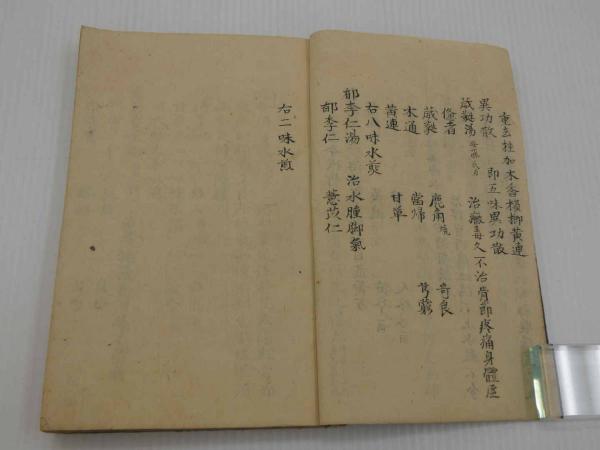 重玄桂加木香梹榔黄連
異功散 即五味異功散
葳蕤湯 治黴毒久不治骨節疼痛身體
葳蕤 鹿角 奇良
木通 當帰 芎藭
黄連 甘草
右八味水煎
郁李仁湯 治水腫脚氣
郁李仁 薏苡仁
右二味水煎